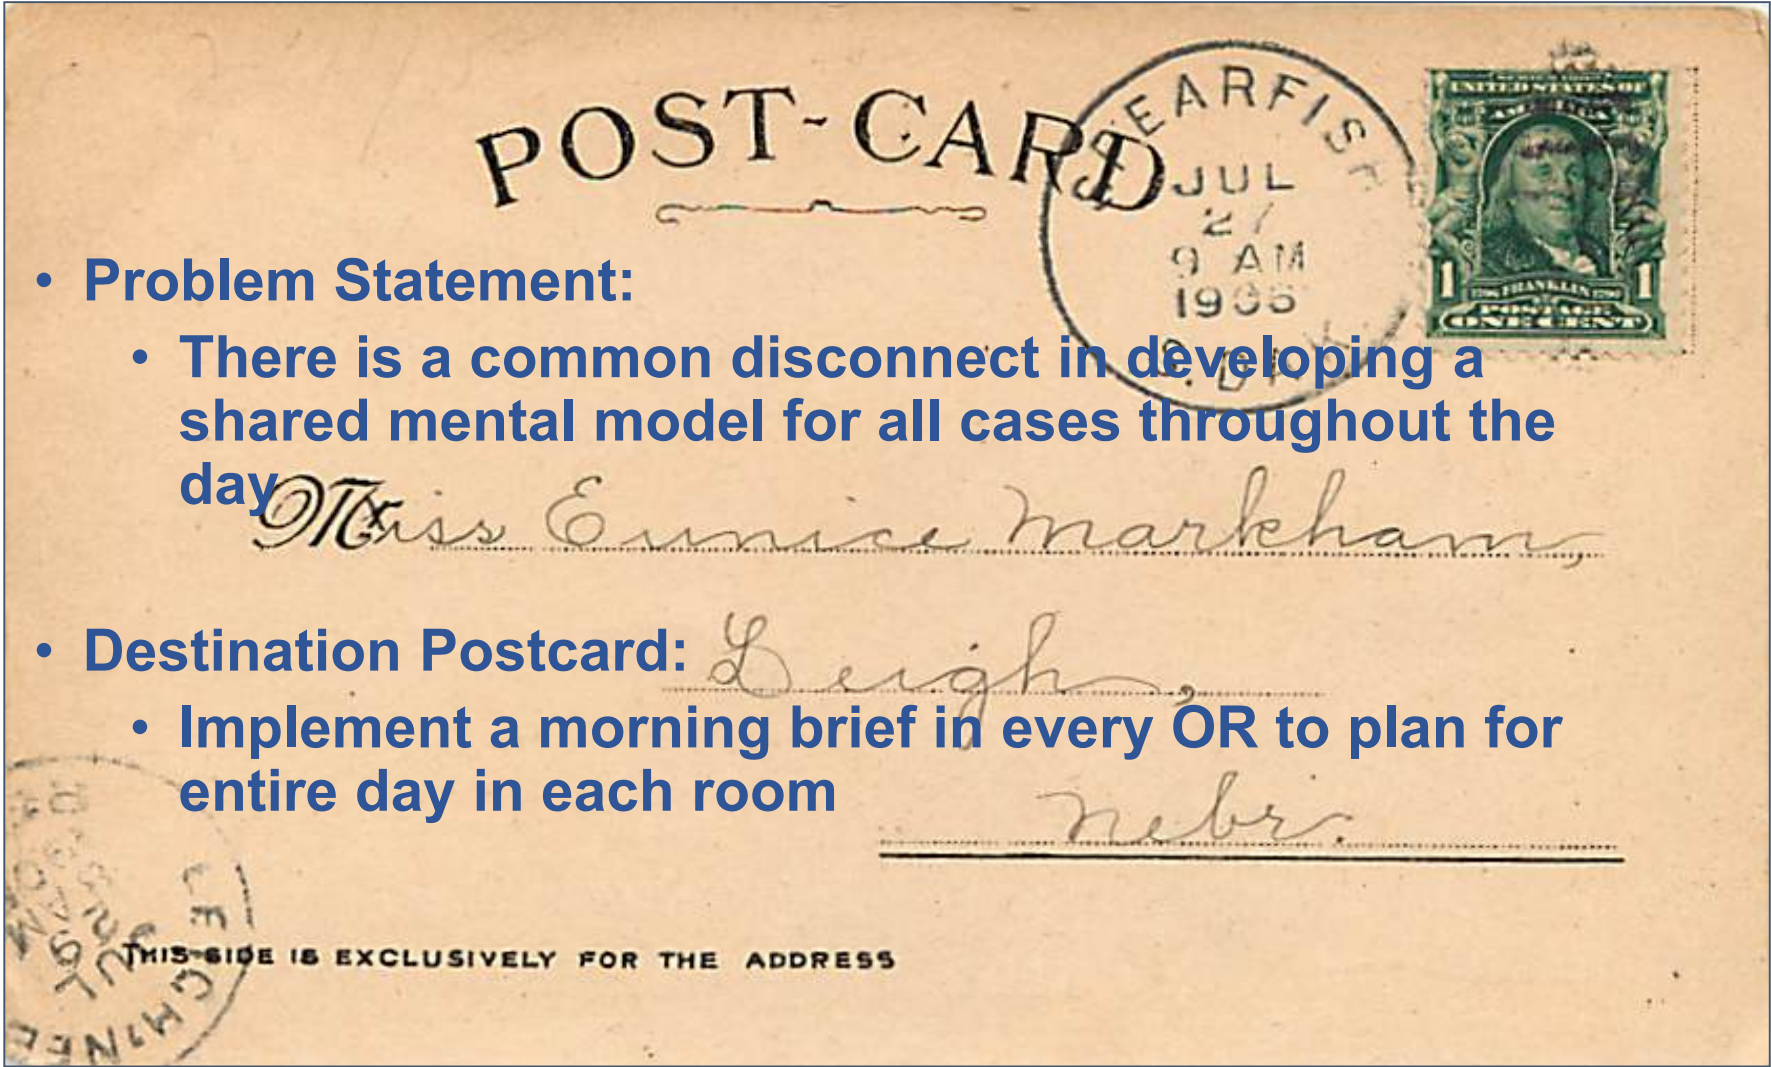 POST-CARD
SPEARFISH
JUL
27
9 AM
S. DAK.
UNITED STATES OF
AMERICA
1 FRANKLIN 1
POSTAGE
ONE CENT
• Problem Statement:
• There is a common disconnect in developing a
shared mental model for all cases throughout the
day
Miss Eunice Markham,
• Destination Postcard:
Leigh,
• Implement a morning brief in every OR to plan for
entire day in each room
Nebr.
THIS SIDE IS EXCLUSIVELY FOR THE ADDRESS
LEIGH NEB
JUL